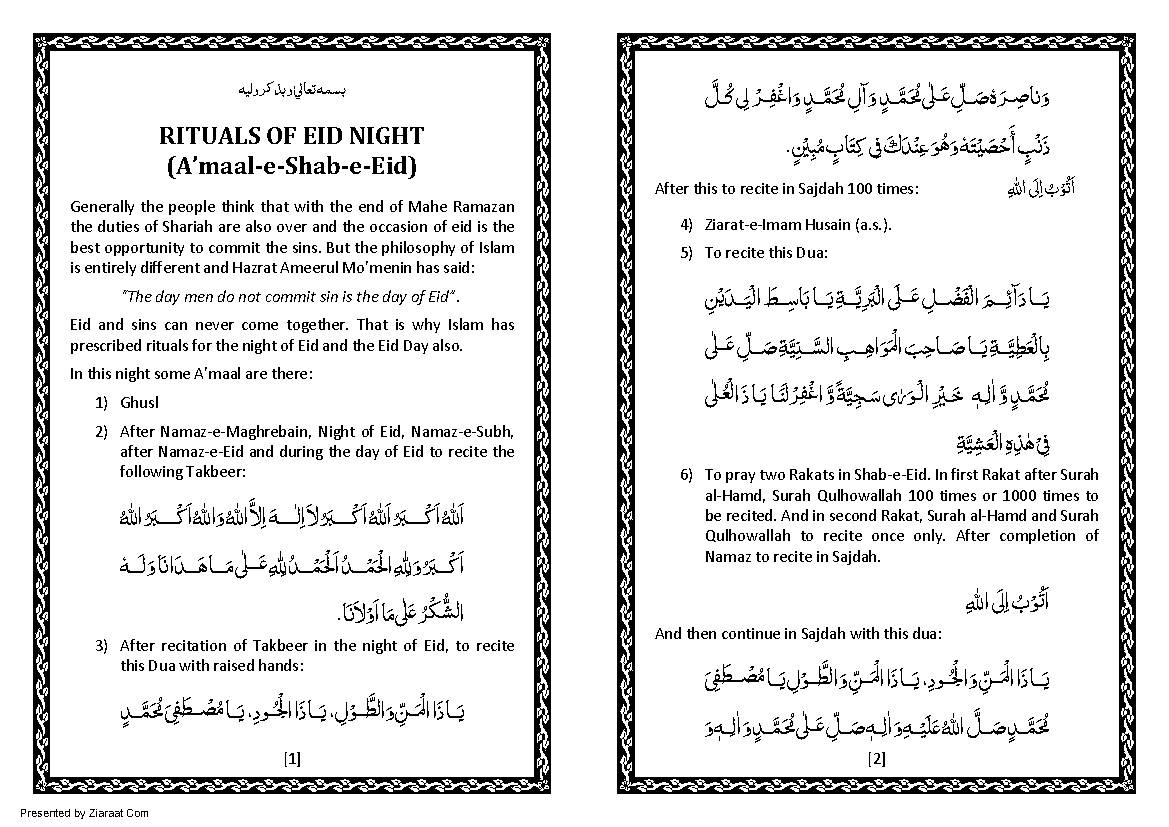 بسمه تعالی وبذکر ولیه
RITUALS OF EID NIGHT
(A’maal-e-Shab-e-Eid)
Generally the people think that with the end of Mahe Ramazan
the duties of Shariah are also over and the occasion of eid is the
best opportunity to commit the sins. But the philosophy of Islam
is entirely different and Hazrat Ameerul Mo’menin has said:
“The day men do not commit sin is the day of Eid”.
Eid and sins can never come together. That is why Islam has
prescribed rituals for the night of Eid and the Eid Day also.
In this night some A’maal are there:
1) Ghusl
2) After Namaz-e-Maghrebain, Night of Eid, Namaz-e-Subh,
after Namaz-e-Eid and during the day of Eid to recite the
following Takbeer:
اَللهُ اَکْبَرُ اَللهُ اَکْبَرُ لَا اِلٰهَ اِلَّا اللهُ وَاللهُ اَکْبَرُ اللهُ
اَکْبَرُ وَلِلهِ الْحَمْدُ اَلْحَمْدُ لِلهِ عَلٰی مَا هَدَانَا وَلَهُ
الشُّکْرُ عَلٰی مَا اَوْلَانَا.
3) After recitation of Takbeer in the night of Eid, to recite
this Dua with raised hands:
یَا ذَا الْمَنِّ وَالطَّوْلِ، یَا ذَا الْجُودِ، یَا مُصْطَفِیَ مُحَمَّدٍ
[1]
وَنَاصِرَهُ صَلِّ عَلٰی مُحَمَّدٍ وَآلِ مُحَمَّدٍ وَاغْفِرْ لِی کُلَّ
ذَنْبٍ أَحْصَیْتَهُ وَهُوَ عِنْدَكَ فِی کِتَابٍ مُبِیْنٍ.
After this to recite in Sajdah 100 times: اَتُوْبُ اِلَی اللهِ
4) Ziarat-e-Imam Husain (a.s.).
5) To recite this Dua:
یَا دَآئِمَ الْفَضْلِ عَلَی الْبَرِیَّةِ یَا بَاسِطَ الْیَدَیْنِ
بِالْعَطِیَّةِ یَا صَاحِبَ الْمَوَاهِبِ السَّنِیَّةِ صَلِّ عَلٰی
مُحَمَّدٍ وَّ اٰلِهِ خَیْرِ الْوَرٰی سَجِیَّةً وَّ اغْفِرْ لَنَا یَا ذَا الْعُلٰی
فِیْ هٰذِهِ الْعَشِیَّةِ
6) To pray two Rakats in Shab-e-Eid. In first Rakat after Surah
al-Hamd, Surah Qulhowallah 100 times or 1000 times to
be recited. And in second Rakat, Surah al-Hamd and Surah
Qulhowallah to recite once only. After completion of
Namaz to recite in Sajdah.
اَتُوْبُ اِلَی اللهِ
And then continue in Sajdah with this dua:
یَا ذَا الْمَنِّ وَالْجُودِ، یَا ذَا الْمَنِّ وَالطَّوْلِ یَا مُصْطَفِیَ
مُحَمَّدٍ صَلَّ اللهُ عَلَیْهِ وَ اٰلِهٖ صَلِّ عَلٰی مُحَمَّدٍ وَ اٰلِهٖ وَ
[2]
Presented by Ziaraat Com